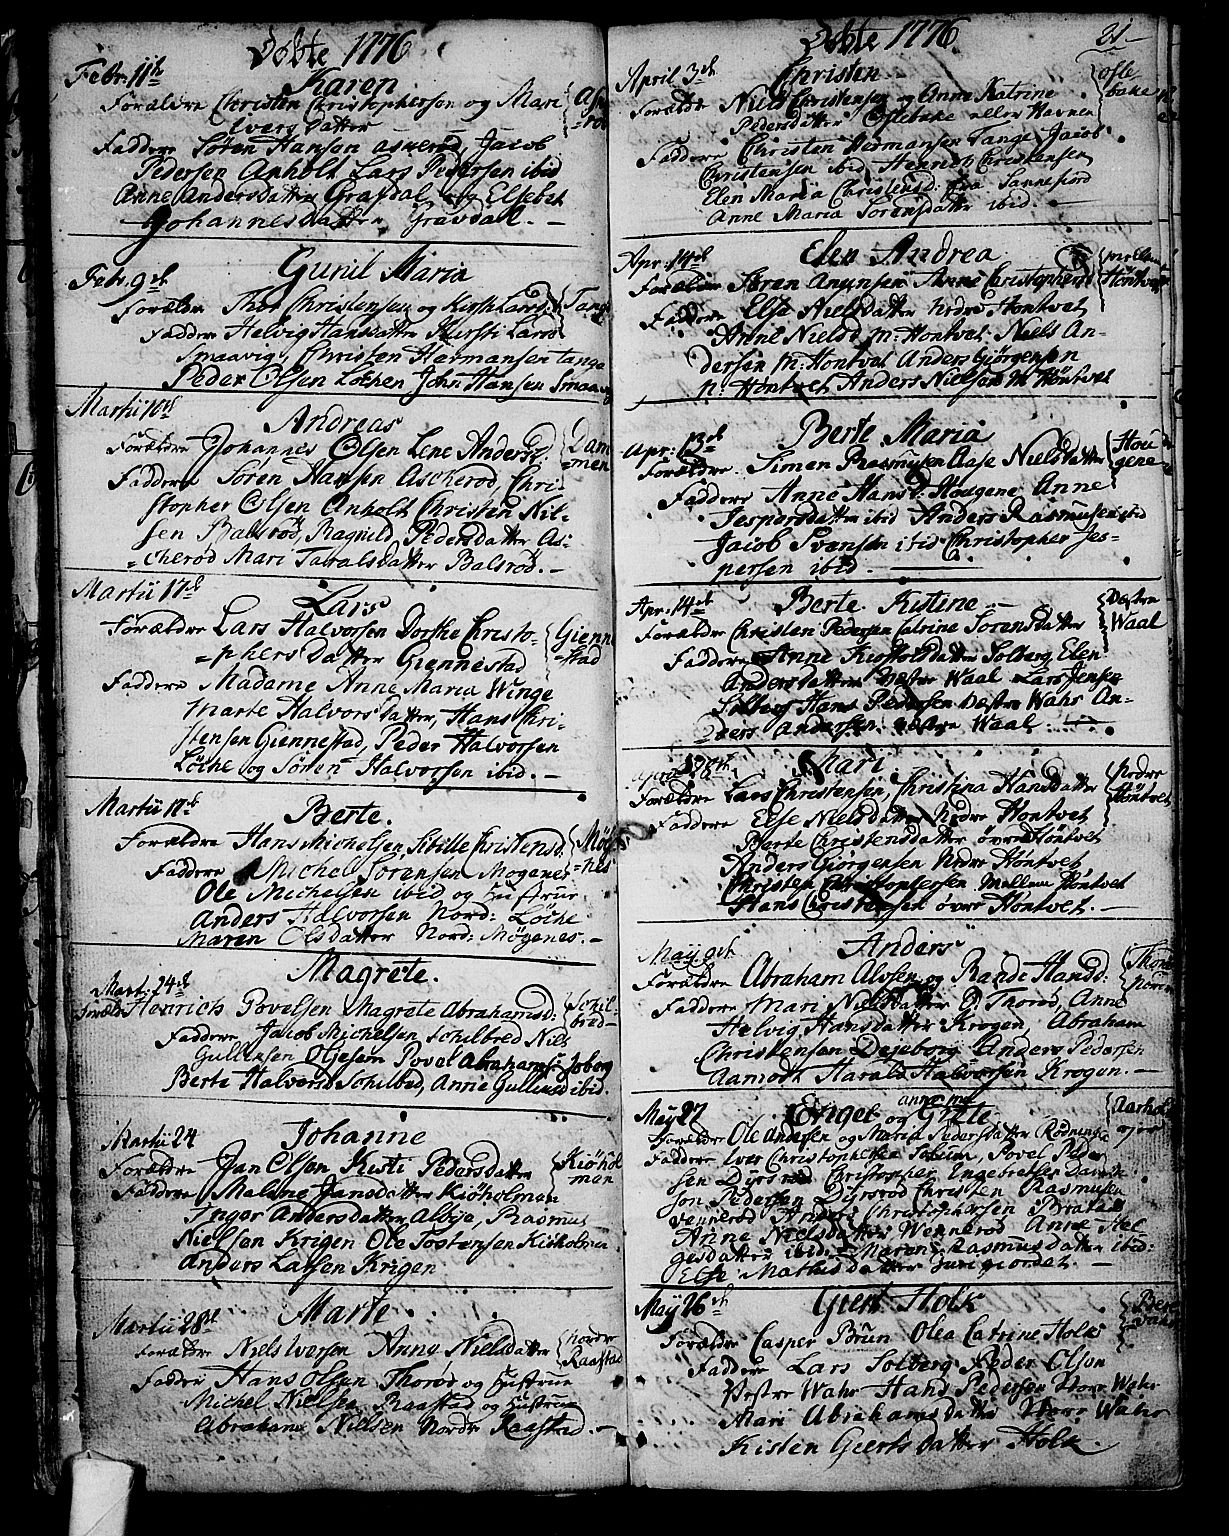 Døbte 1776
Febr: 11te
Karen
Forældre Christen Christophersen og Mari
Ivers Datter
Faddere Søren Hanson Askerød, Jacob
Pedersen Anholt Lars Pedersen ibid
Anne Andersdatter Gravdal og Elsebet
Johannesdatter Gravdal. —
Febr 9de
Gunil Maria
Forældre Thor Christensen og Kirsti Larsd. Tange
Faddere Helvig Hansdatter Kirsti Larsd
Smaavig, Christen Harmansen tange
Peder Olsen Løchen John Hansen Smaavig
Martii 10de
Andreas
Forældre Johannes Olsen Lene Andersd. Dam
=men
Faddere Søren Hansen Ascherød, Chri-
stopher Olsen Anholt Christen Nil-
sen Balsrød, Ragnild Pedersdatter As-
=cherød Mari Taralsdatter Balsrød. —
Martii 17de
Lars
Forældre Lars Halvorsen Dorthe Christo-
=phersdatter Giennestad
Gienne
stad
Faddere Madame Anne Maria Winge
Marte Halvorsdatter, Hans Chri-
stensen Giennestad, Peder Halvorsen
Løche og Søren Halvorsen ibid. —
Martii 17de
Berte.
Forældre Hans Michelsen, Sibille Christensd. Møg
=nes
Faddere Michel Sørensen Mogenes
Ole Michelsen ibid og Hustrue
Anders Halvorsen Nord: Løche
Maren Olsdatter Nord: Møgenes. —
Mart: 24de
Magrete.
Forældre Henrich Povelsen Magrete Abrahamsd: Schil-
bred
Faddere Jakob Michelsen Schilbred Niels
Gullicksen Olsesen Povel Abrahams:
Berte Halvorsd Schilbred, Anne Gullicksd ibid.
Martii 24
Johanne
Forældre Jan Olsen Kisti Pedersdatter Kiøhol
man
Faddere Malene Jansdatter Kiøholman
Inger Andersdatter Albye, Rasmus
Nielsen Krigen Ole Tostensen Kiøholman
Anders Larsen Krigen
Martii 28de
Marte
Forældre Niels Iversen Anne Nielsdatter Nordre
Raastad
Faddere Hans Olsen Thorød og Hustrue
Michel Nielsen Raastad og Hustrue
Abraham Nielsen Nordre Raastad. —
Døbte 1776
21
April 3de
Christen
Ofle
bake
Forældre Niels Christensen og Anne Katrine
Pedersdatter Oflebake eller Havnen
Faddere Christen Hermansen Tange Jacob
Christensen ibid Henrich Christensen
Elen Maria Christensd. fra Sannefiord
Anne Maria Sørensdatter ibid. —
Apr: 14de
Elen Andrea
Forældre Søren Anunsen Anne Christophersd
mellem
Høntvet
Faddere Else Nielsdatter Nedre Høntvet
Anne Nielsd M: Høntvet Niels An-
dersen M: Høntvet Anders Giørgensen
N: Høntvet Anders Nielsen M: Høntvet
Apr: 13de
Berte Maria
Forældre. Simen Rasmusen Aase Nielsdatter Hou
gene
Faddere Anne Hansd. Hougene Anne
Jespersdatter ibid Anders Rasmusen ibid
Jacob Svensen ibid Christopher Jes-
persen ibid. —
Apr: 14de
Berte Kistine —
Forældre Christen Pedersen Catrine Sørensdatter
Vestre
Waal
Faddere Anne Kioftolsdatter Solberg Elen
Andersdatter Vestre Waal Lars Jensen
Solberg Hans Pedersen Vestre Wahr An-
ders Andersen Vestre Waal.
April 28de
Mari
Forældre Lars Christensen, Christina Hansdatter
Nedre
Høntvet
Faddere Else Nielsdatter Nedre Høntvet
Berte Christensdatter øvre Høntvet
Anders Giørgensen Nedre Høntvet
Christen Christophersen Mellem Høntvet
Hans Christensen øvre Høntvet. —
May 9de
Anders
Forældre Abraham Alvsen og Rande Hansd:
Faddere Mari Nielsdatter Thorød, Anne
Helvig Hansdatter Krogen, Abraham
Christensen Dejeborg Anders Pedersen
Aamodt Harald Halvorsen Krogen. —
May 27
Engel og anne me Grete
Forældre Ole Andersen og Maria Pedersdatter Rødninge
Faddere Iver Christophersen Sobum, Povel Peder-
sen Dyrsrød Christopher Engebretsen
Pedersen Dyrsrød Christen Rasmusen
Vennerød Anders Christophersen
Anne Nielsdatter Wennerød Anne Hel
gesdatter ibid: Maren Rasmusdatter ibid:
Else Mathisdatter
May 26de
Giert Holk
Forældre Casper Brun Olea Catrine Holk
Faddere Lars Solberg Peder Olsen
Vestre Wahr Hans Pedersen Wahr
Mari Abrahamsdatter Wahr
Kisten Giertsdatter Holk.